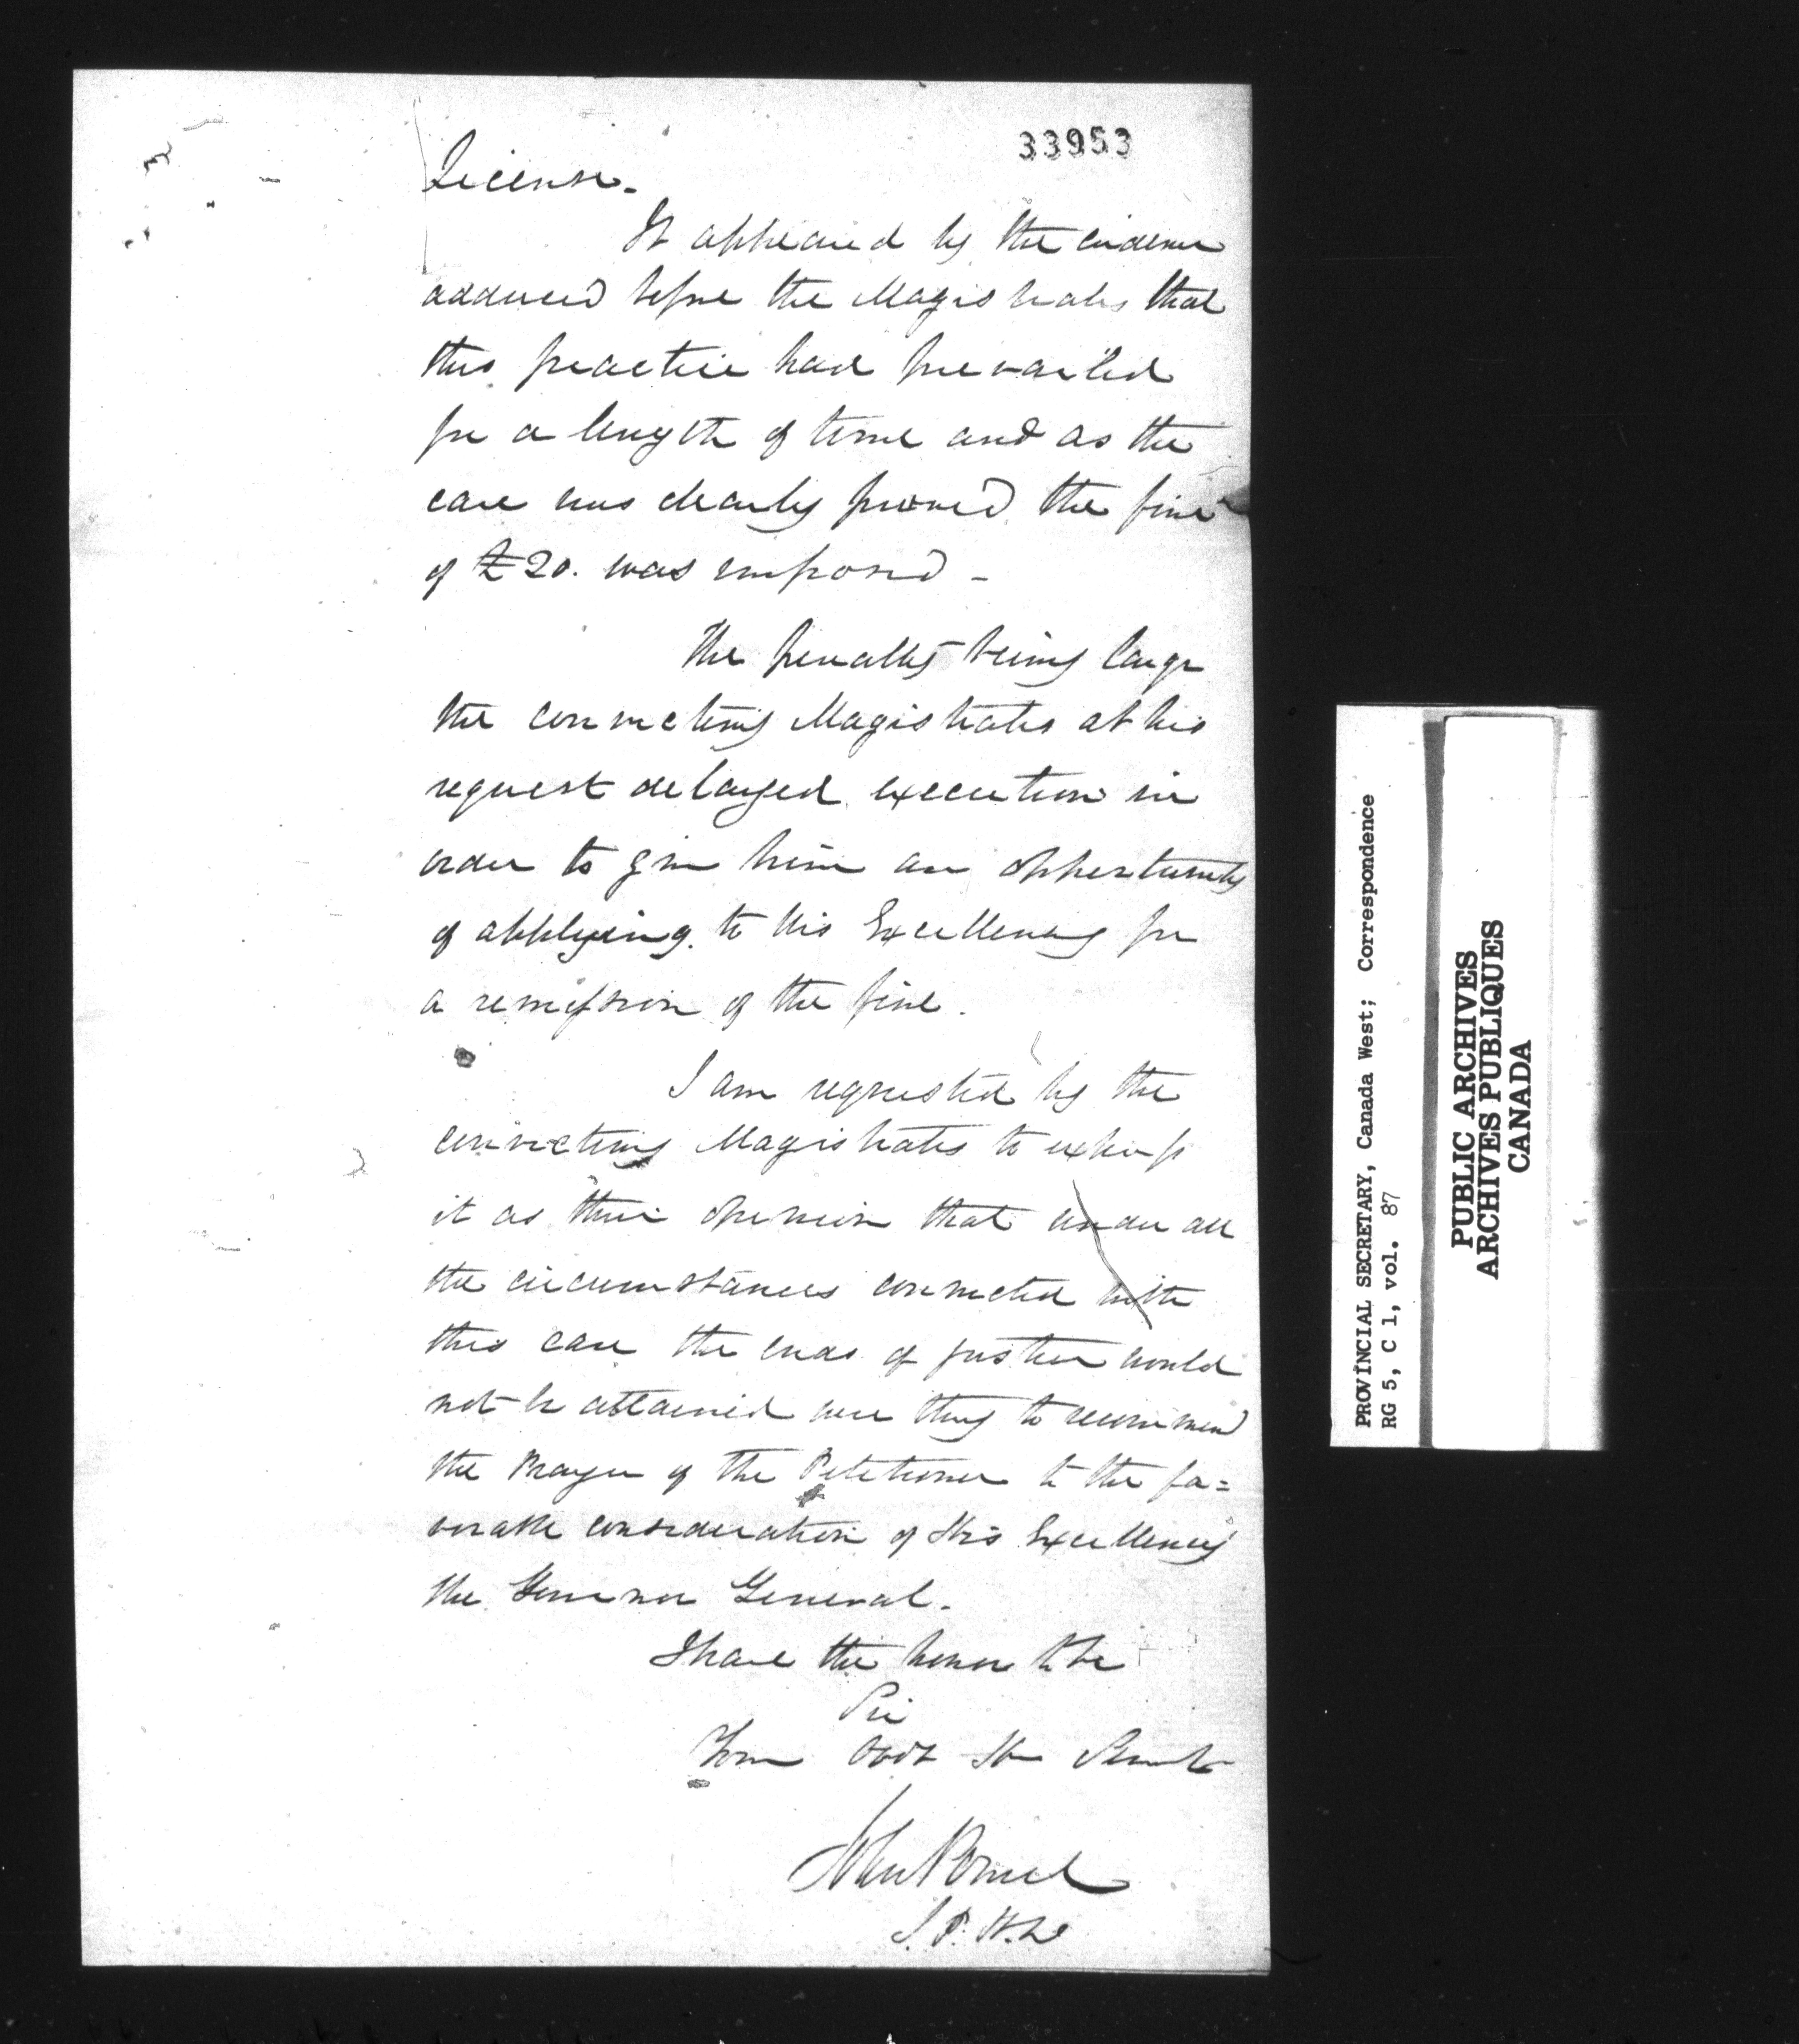 33953
License.
It appeared by the evidence
adduced before the Magistrates that
this practice had prevailed
for a length of time and as the
case was clearly proved the fine
of £20. was imposed -
The penalty being large
the convicting Magistrates at his
request delayed execution in
order to give him an opportunity
of applying to His Excellency for
a remission of the fine.
I am requested by the
convicting Magistrates to express
it as their opinion that under all
the circumstances connected with
this case the ends of justice would
not be attained were they to recommend
the Prayer of the Petitioner to the fa=
vorable consideration of His Excellency
the Governor General.
I have the honor to be
Sir
Your Obdt Hm Servt
John Powel
J.P. H.D
PROVINCIAL SECRETARY, Canada West; Correspondence
RG 5, C 1, vol. 87
PUBLIC ARCHIVES
ARCHIVES PUBLIQUES
CANADA